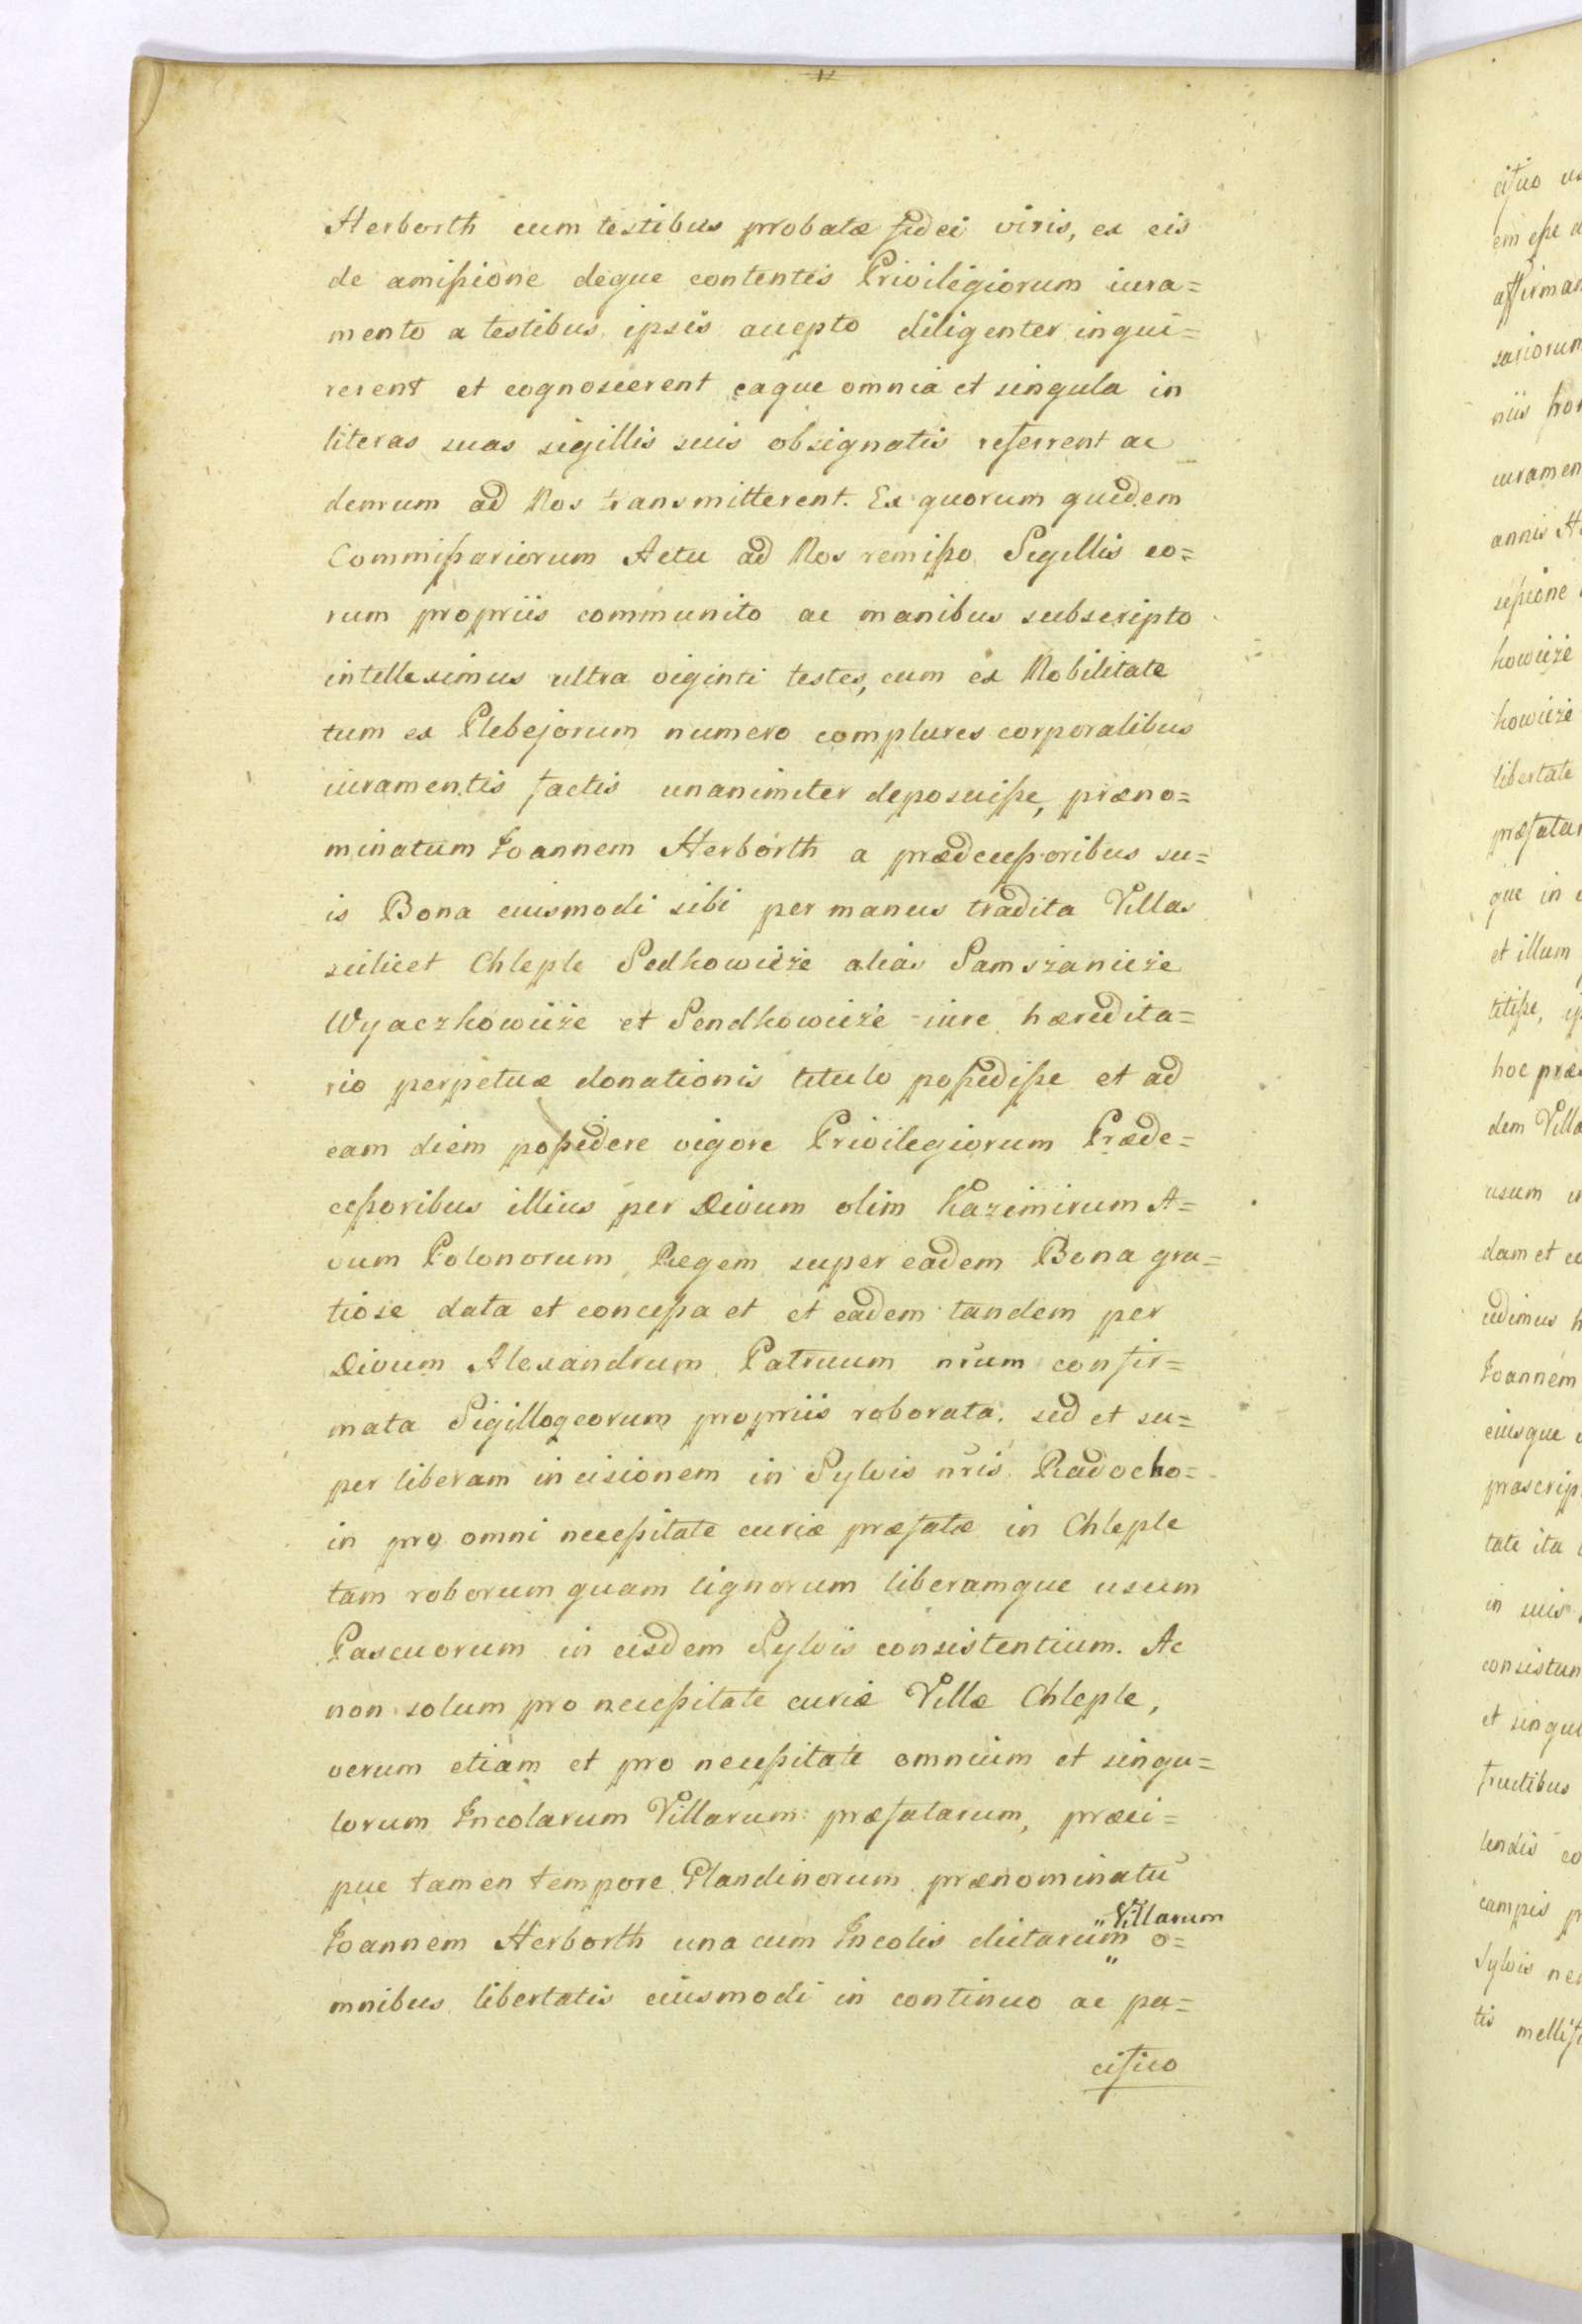 Herborth cum testibus probatæ fidei viris, ex eis
de amissione deque contentis Privilegiorum iura=
mento a testibus ipsis accepto diligenter inqui=
rerent et cognoscerent eaque omnia et singula in
literas suas sigillis suis obsignatis referrent ac
demum ad Nos transmitterent. Ex quorum quidem
Commissariorum Actu ad Nos remisso Sigillis eo=
rum propriis communito ac manibus subscripto
intelleximus ultra viginti testes, cum ex Nobilitate
tum ex Plebejorum numero complures corporalibus
iuramentis factis unanimiter deposuisse, præno=
minatum Joannem Herborth a prædecessoribus su=
is Bona euismodi sibi per manus tradita Villas
scilicet Chleple Sedkowiże alias Samszaniże
Wyaczkowiiże et Sendkowiże iure hæredita=
rio perpetuæ donationis titulo possedisse et ad
eam diem possidere vigore Privilegiorum Præde=
cessoribus illius per Divum olim Kazimirum A=
vum Polonorum Regem super eadem Bona gra=
tiose data et concessa et et eadem tandem per
Divum Alexandrum Patruum nrum confir=
mata Sigilloqeorum propriis roborata. sed et su=
per liberam incisionem in Sylvis nris Radocho=
in pro omni necessitate curiæ præfatæ in Chleple
tam roborum quam lignorum liberamque usum
Pascuorum in eisdem Sylvis consistentium. Ac
non solum pro necessitate curiæ Villæ Chleple,
verum etiam et pro necessitate omnium et singu=
lorum Incolarum Villarum præfatarum, præci=
pue tamen tempore Glandinorum prænominatū
Joannem Herborth una cum Incolis dictarum " Villarum o=
mnibus libertatis eiusmodi in continuo ac pa=
cifico
citus
em esse
affirman
sariorum
niis
iuramen
annis
sessione
howiże
howiże
libertate
præfatar
que in
et illum
titisse,
hoc præ
dem Villa
usum
dam et
cidimus
Joannem
eiusque
præscrip
tate ita
in suis
consistun
et singul
fructibus
lendis
campis
Sylvis
tis mellif